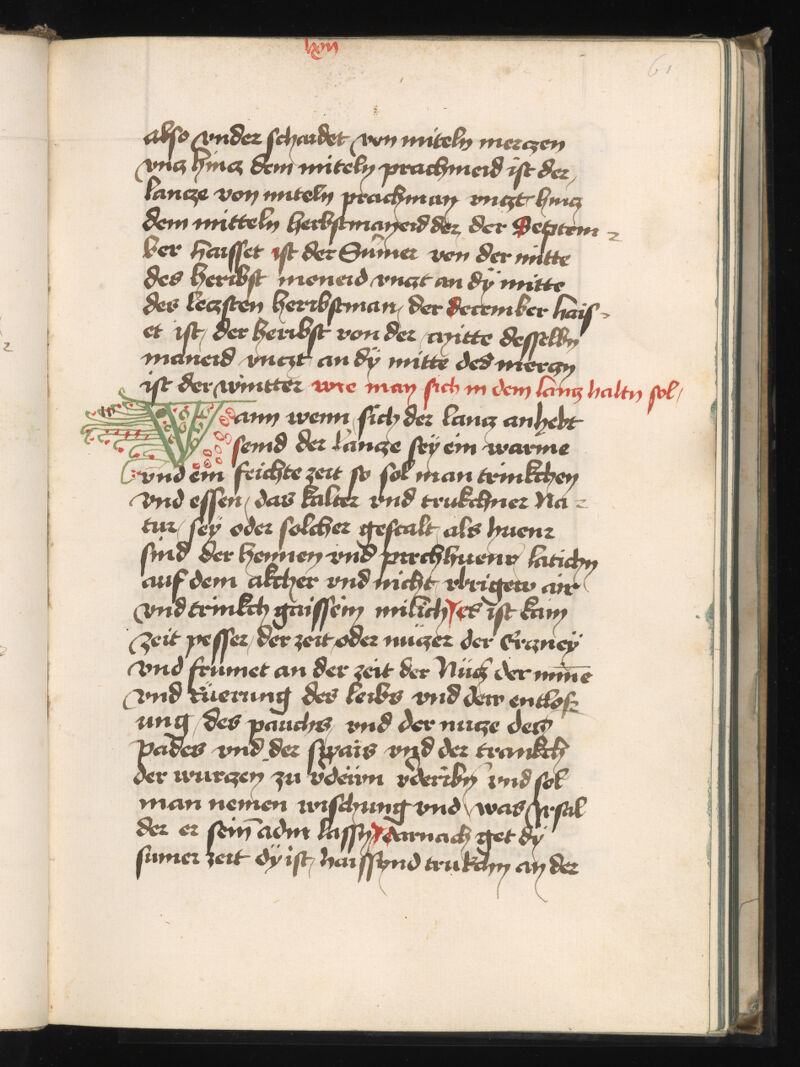 lxvj
61
also vnder schaidet von miteln merczen
vncz hincz dem miteln prachmeid ist der
lancze von miteln prachman vnczt hincz
dem mitteln herbstmaneid der der Septem-
ber haisset ist der Sumer von der mitte
des heribst moneid vnczt an dÿ mitte
des leczsten herribstman der december hais-
et ist der heribst von der mitte desselbn
maneid vnczt an dÿ mitte des merczn
ist der wintter wie man sich in dem lancz haltn sol
Wann wenn sich der lancz anhebt
seind der lancze seÿ ein warme
vnd ein feichte zeit so sol man trinkchen
vnd essen das kalter vnd trukchner Na-
tur seÿ oder solcher gestalt als huenr
sind der hennen vnd prechhuenr latichn
auf dem akcher vnd nicht vbriger air
vnd trinkch gaissein milich es ist kain
zeit pesser der zeit oder nüczer der Erczneÿ
vnd frumet an der zeit der Nücz der minne
vnd rüerung des leibs vnd der entlos-
ung des pauchs vnd der nucze des
pades vnd der swais vnd der trankch
der wurczen zu
man nemen wischung vnd was vrsal
der er sein adnr lassn darnach get dÿ
sumer zeit dÿ ist haissz vnd trukchn an der